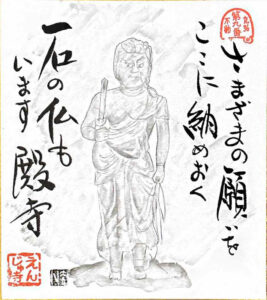 さまざまの願いを
ここに納めおく
石の仏も
います殿寺
第九番